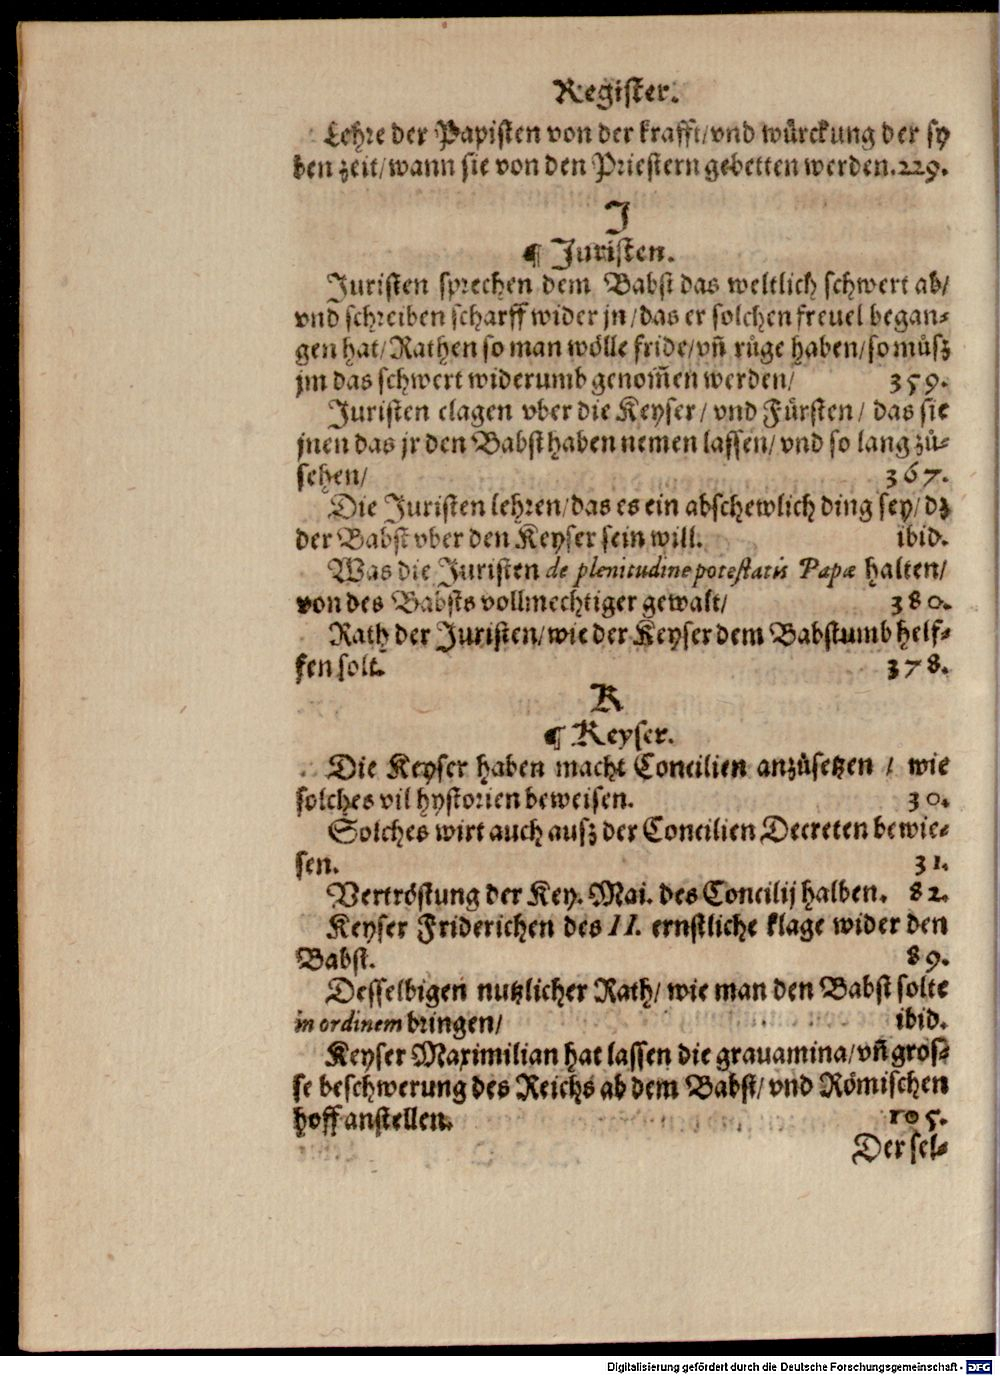 Register.
Lehre der Papisten von der krafft/vnd würckung der sy
ben zeit/wann sie von den Priestern gebetten werden.229.
J
¶ Juristen.
Juristen sprechen dem Babst das weltlich schwert ab/
vnd schreiben scharff wider jn/das er solchen freuel began-
gen hat/Rathen so man wölle fride/vñ rüge haben/so müsz
jm das schwert widerumb genom̃en werden/ 359.
Juristen clagen vber die Keyser/vnd Fürsten/das sie
jnen das jr den Babst haben nemen lassen/vnd so lang zů-
sehen/ 367.
Die Juristen lehren/das es ein abschewlich ding sey/dz
der Babst vber den Keyser sein will. ibid.
Was die Juristen de plenitudine potestatis Papæ halten/
von des Babsts vollmechtiger gewalt/ 380.
Rath der Juristen/wie der Keyser dem Babstumb helf-
fen solt. 378.
K
¶ Keyser.
Die Keyser haben macht Concilien anzůsetzen / wie
solches vil hystorien beweisen. 30.
Solches wirt auch ausz der Concilien Decreten bewie-
sen. 31.
Vertröstung der Key. Mai. des Concilij halben. 82.
Keyser Friderichen des II. ernstliche klage wider den
Babst. 89.
Desselbigen nutzlicher Rath/wie man den Babst solte
in ordinem bringen/ ibid.
Keyser Maximilian hat lassen die grauamina/vñ gros-
se beschwerung des Reichs ab dem Babst/vnd Römischen
hoff anstellen. 105.
Der sel-
Digitalisierung gefördert durch die Deutsche Forschungsgemeinschaft - DFG